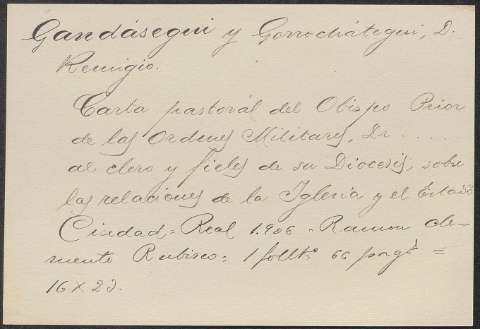 Gandásegui y Gorrochátegui, D.
Remigio.
Carta pastoral del Obispo Prior
de las Ordenes Militares, Dr. ....
al clero y fieles de su Diocesis, sobre
las relaciones de la Iglesia y el Estado
Ciudad,=Real 1.906 - Ramon Cle-
mente Rubisco= 1 follt.º 66 pags =
16 X 23.